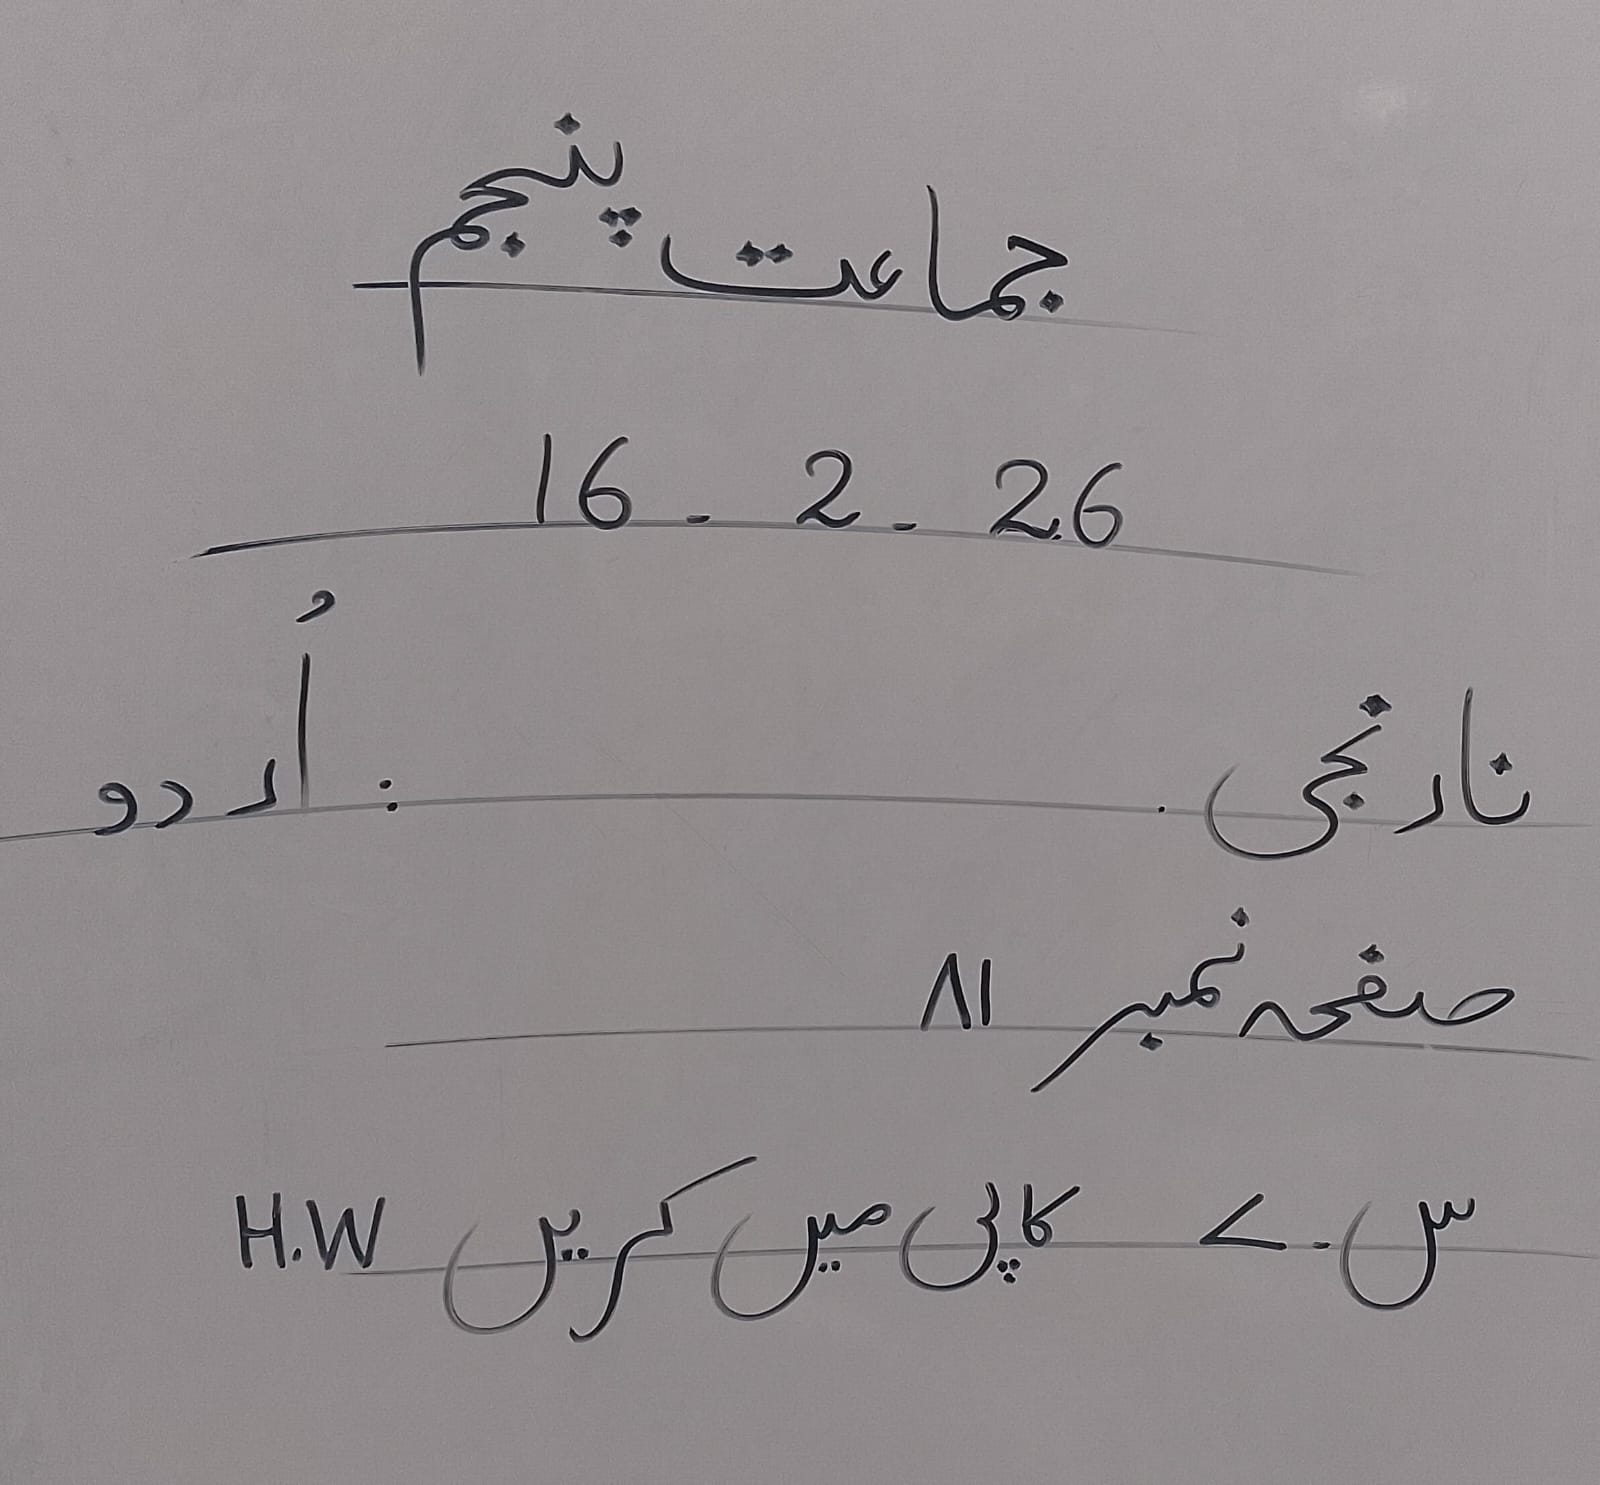 جماعت پنجم
16 - 2 - 26
نارنجی . : اُردو
صفحہ نمبر ۸۱
س - ۷ کاپی میں کریں H.W